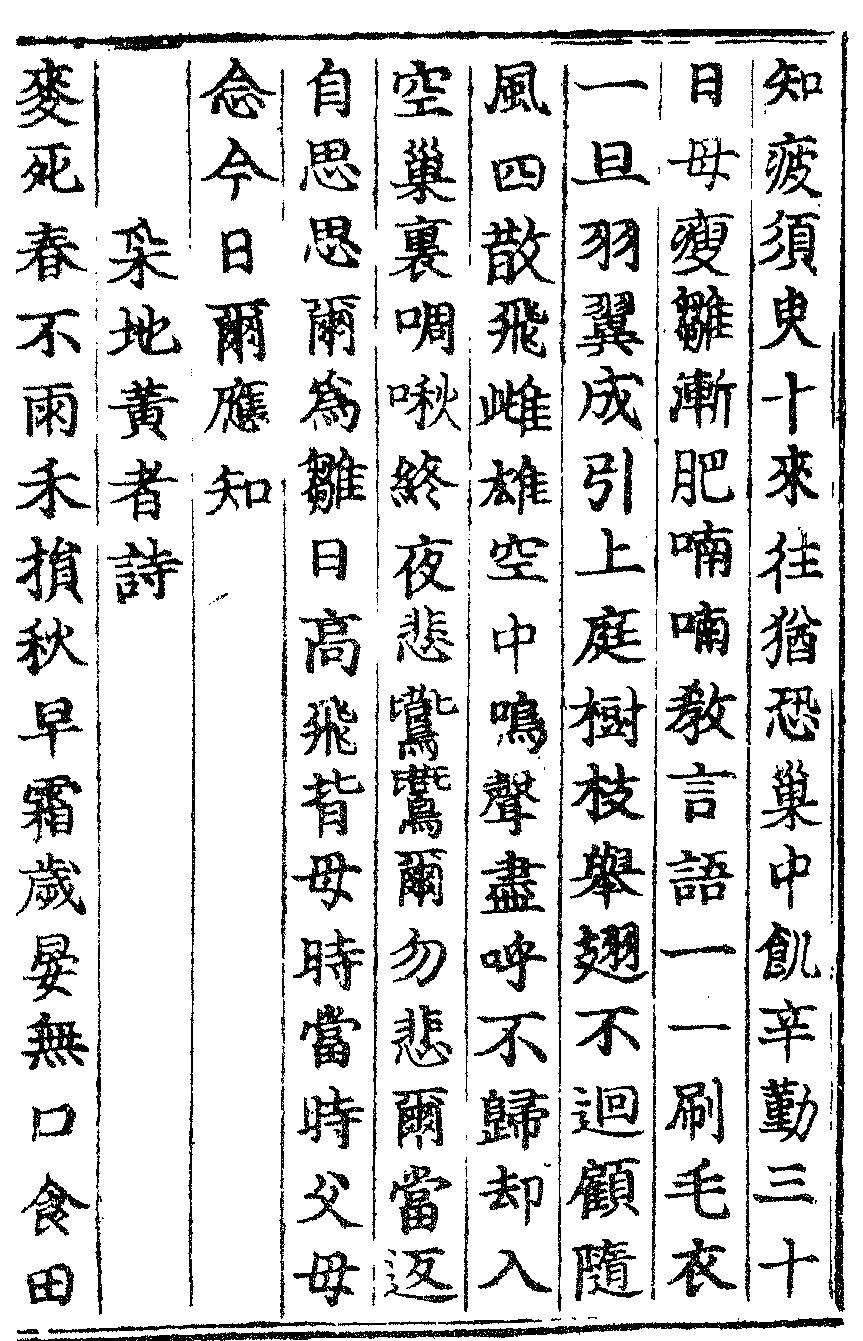 知疲須臾十來往猶恐巢中飢辛勤三十
日母瘦雛漸肥喃喃教言語一一刷毛衣
一旦羽翼成引上庭樹枝舉翅不迴顧隨
風四散飛雌雄空中鳴聲盡呼不歸却入
空巢裏啁啾終夜悲鷰鷰爾勿悲爾當返
自思思爾為雛日高飛背母時當時父母
念今日爾應知
采地黃者詩
麥死春不雨禾損秋早霜歲晏無口食田